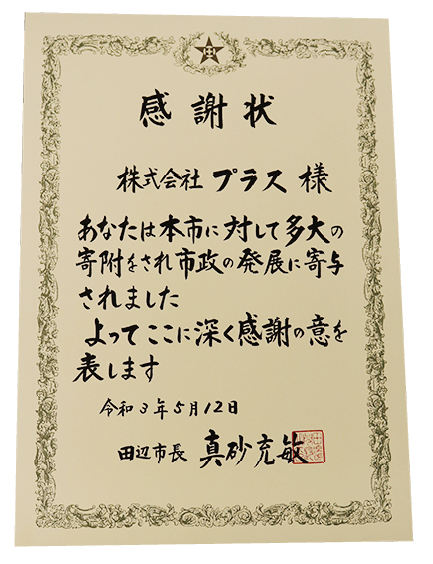 感謝状
株式会社 プラス 様
あなたは本市に対して多大の
寄附をされ市政の発展に寄与
されました
よってここに深く感謝の意を
表します
令和3年5月12日
田辺市長 真砂充敏